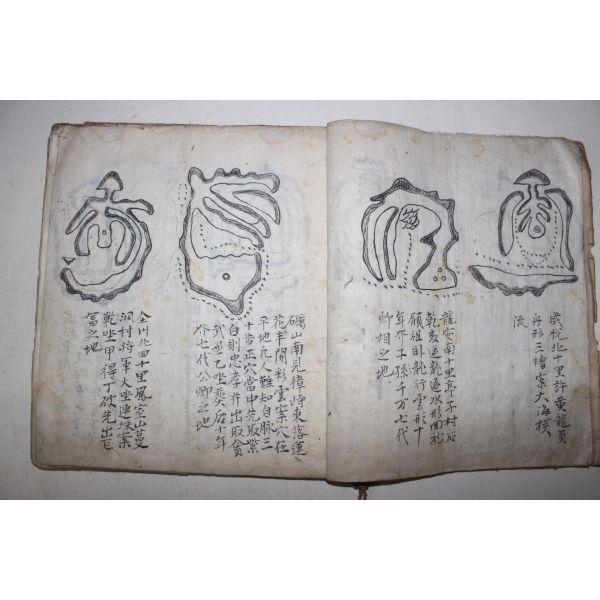 咸悅北十里許黃龍負
丹形三檜案大海橫
流
龍安南十里亭子村后
乾亥逆龍逆水形回龍
顧祖臥龍行雲形十
年
子孫千万七代
卿相之地
礪山南見獐峙東落蓮
花半開形雲案穴在
平地凡人難知自脉三
十步正穴當中先取紫
白則忠孝并出取貪
武
乙坐葬后十年
七代公卿之地
全川北四十里鳳室山蔓
洞村將軍大坐連珠案
乾坐甲得丁破先出
富之地